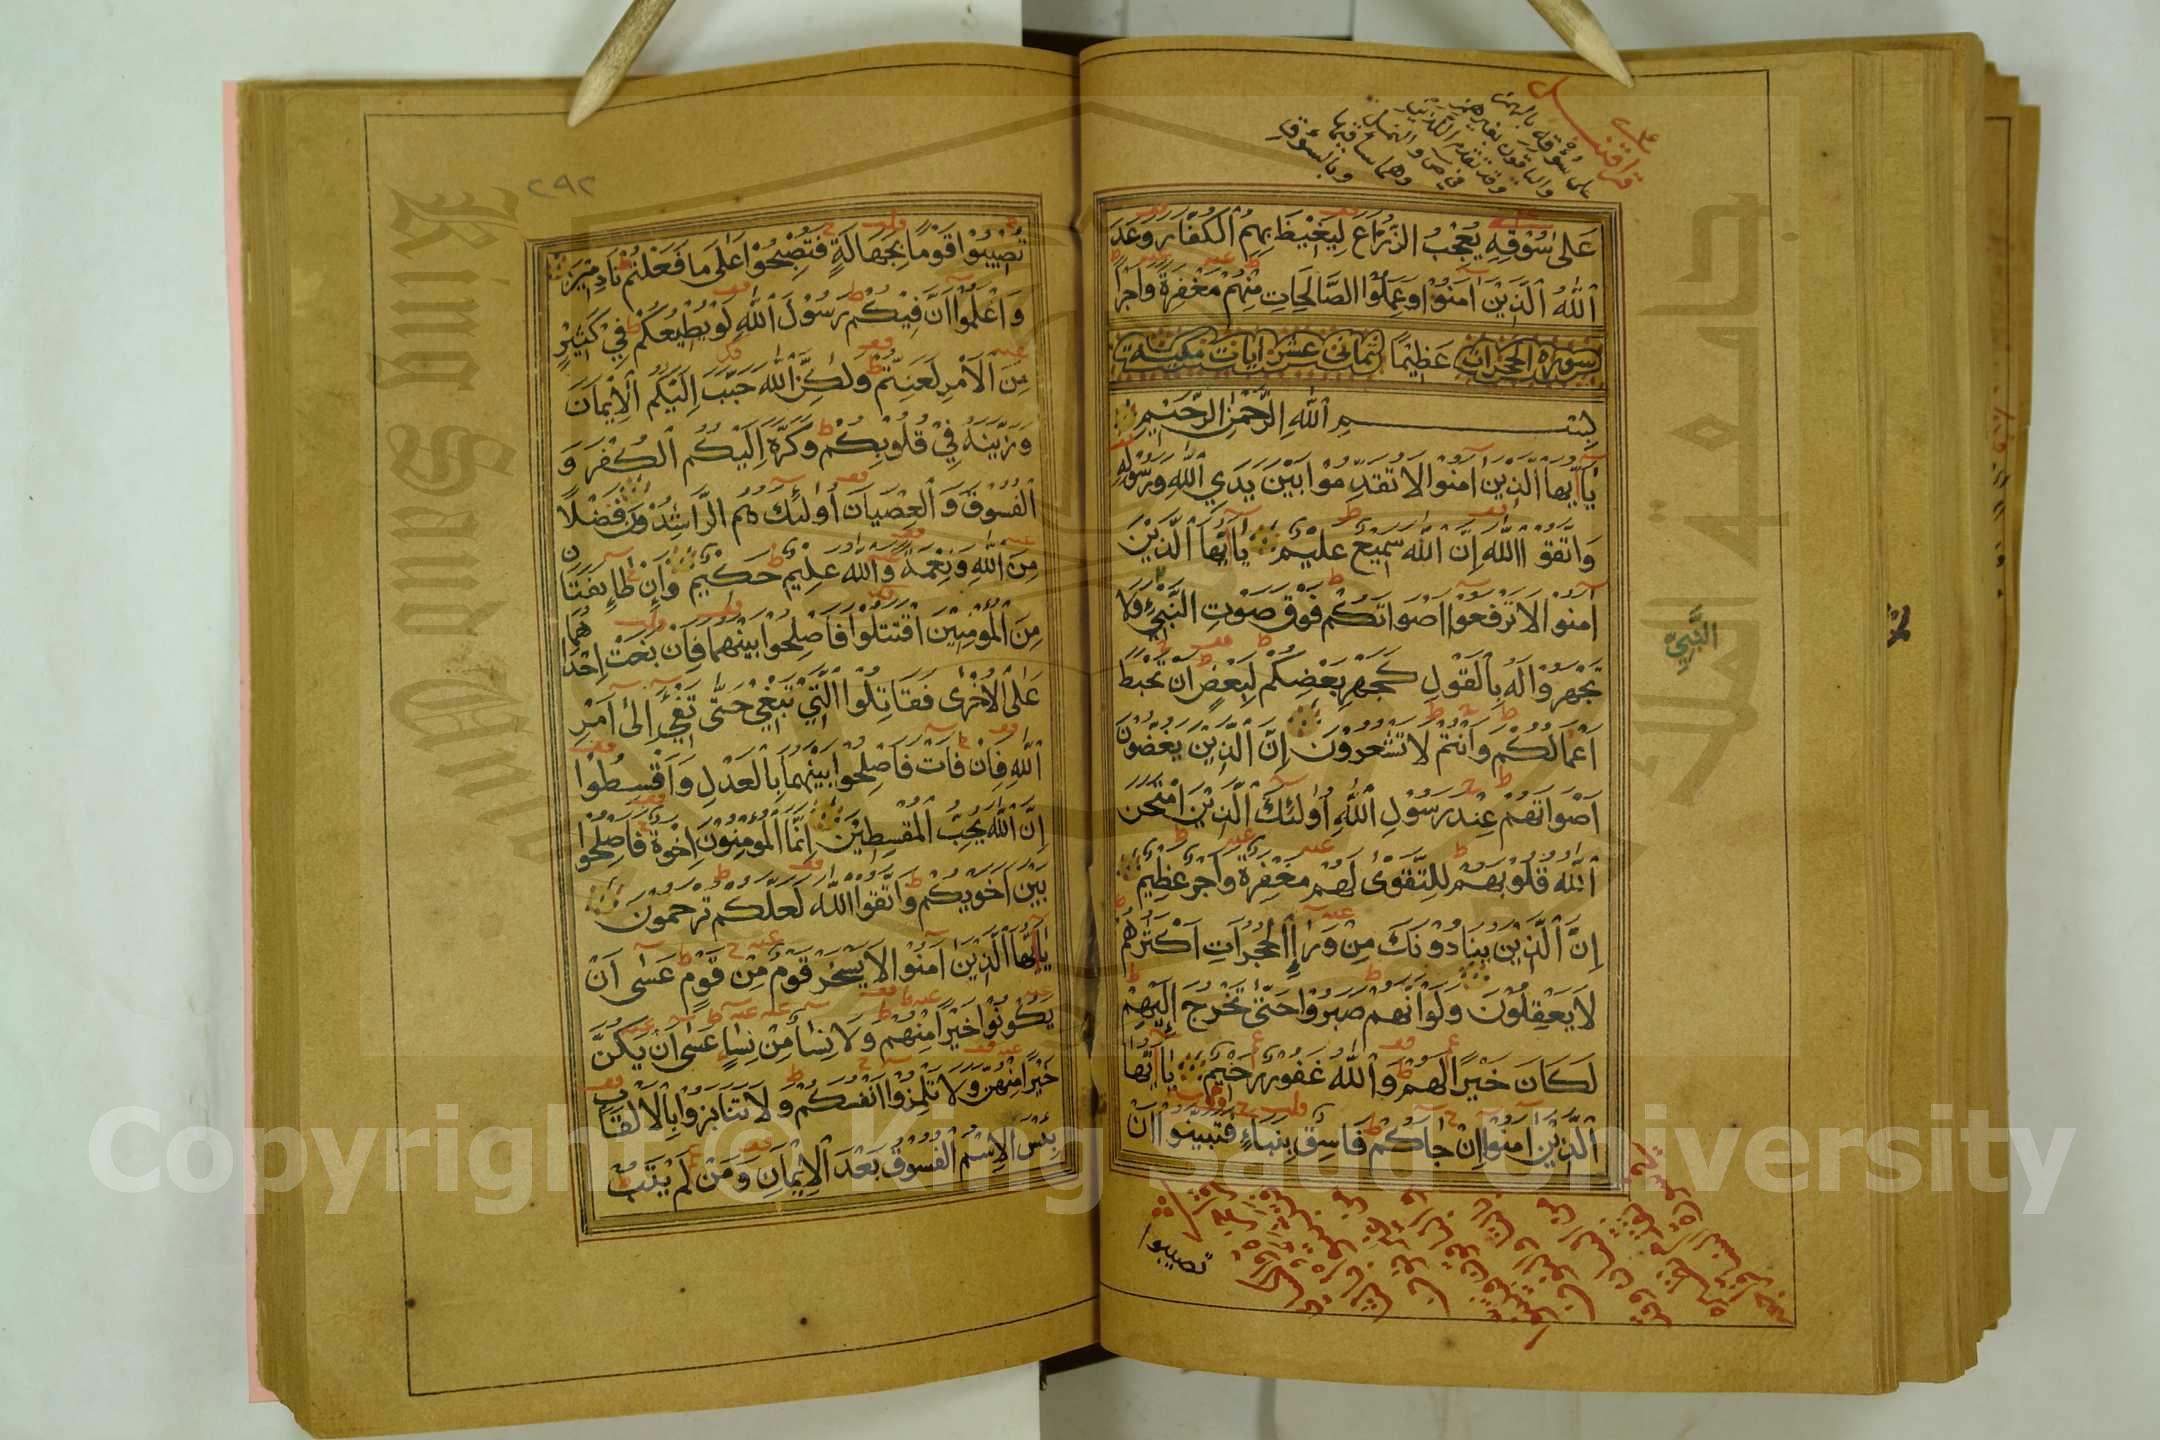 عَلَىٰ سُوْقِهٖ يُعْجِبُ الزُّرَّاعَ لِيَغِيْظَ بِهِمُ الْكُفَّارَ وَعَدَ
اللّٰهُ الَّذِيْنَ اٰمَنُوْا وَعَمِلُوا الصَّالِحَاتِ مِنْهُمْ مَغْفِرَةً وَاَجْرًا
سورة الحجرات عَظِيْمًا ثمانى عشر ايات مكية
بِسْمِ اللّٰهِ الرَّحْمٰنِ الرَّحِيْمِ
يَا اَيُّهَا الَّذِيْنَ اٰمَنُوْا لَا تُقَدِّمُوْا بَيْنَ يَدَيِ اللّٰهِ وَرَسُوْلِهٖ
وَاتَّقُوا اللّٰهَ اِنَّ اللّٰهَ سَمِيْعٌ عَلِيْمٌ يَا اَيُّهَا الَّذِيْنَ
اٰمَنُوْا لَا تَرْفَعُوْا اَصْوَاتَكُمْ فَوْقَ صَوْتِ النَّبِيِّ وَلَا
تَجْهَرُوْا لَهُ بِالْقَوْلِ كَجَهْرِ بَعْضِكُمْ لِبَعْضٍ اَنْ تَحْبَطَ
اَعْمَالُكُمْ وَاَنْتُمْ لَا تَشْعُرُوْنَ اِنَّ الَّذِيْنَ يَغُضُّوْنَ
اَصْوَاتَهُمْ عِنْدَ رَسُوْلِ اللّٰهِ اُولٰئِكَ الَّذِيْنَ امْتَحَنَ
اللّٰهُ قُلُوْبَهُمْ لِلتَّقْوٰى لَهُمْ مَغْفِرَةٌ وَاَجْرٌ عَظِيْمٌ
اِنَّ الَّذِيْنَ يُنَادُوْنَكَ مِنْ وَرَاءِ الْحُجُرَاتِ اَكْثَرُهُمْ
لَا يَعْقِلُوْنَ وَلَوْ اَنَّهُمْ صَبَرُوْا حَتّٰى تَخْرُجَ اِلَيْهِمْ
لَكَانَ خَيْرًا لَهُمْ وَاللّٰهُ غَفُوْرٌ رَحِيْمٌ يَا اَيُّهَا
الَّذِيْنَ اٰمَنُوْا اِنْ جَاۤكُمْ فَاسِقٌ بِنَبَاءٍ فَتَبَيَّنُوْا اَنْ
تصيبوا
النَّبِيّ
٢٩٢
تُصِيْبُوْا قَوْمًا بِجَهَالَةٍ فَتُصْبِحُوْا عَلٰى مَا فَعَلْتُمْ نَادِمِيْنَ
وَاعْلَمُوْا اَنَّ فِيْكُمْ رَسُوْلَ اللّٰهِ لَوْ يُطِيْعُكُمْ فِيْ كَثِيْرٍ
مِنَ الْاَمْرِ لَعَنِتُّمْ وَلٰكِنَّ اللّٰهَ حَبَّبَ اِلَيْكُمُ الْاِيْمَانَ
وَزَيَّنَهُ فِيْ قُلُوْبِكُمْ وَكَرَّهَ اِلَيْكُمُ الْكُفْرَ وَ
الْفُسُوْقَ وَالْعِصْيَانَ اُولٰئِكَ هُمُ الرَّاشِدُوْنَ فَضْلًا
مِنَ اللّٰهِ وَنِعْمَةً وَاللّٰهُ عَلِيْمٌ حَكِيْمٌ وَاِنْ طَائِفَتَانِ
مِنَ الْمُؤْمِنِيْنَ اقْتَتَلُوْا فَاَصْلِحُوْا بَيْنَهُمَا فَاِنْ بَغَتْ اِحْدٰاهُمَا
عَلَى الْاُخْرٰى فَقَاتِلُوا الَّتِيْ تَبْغِيْ حَتّٰى تَفِيْۤءَ اِلٰى اَمْرِ
اللّٰهِ فَاِنْ فَاۤءَتْ فَاَصْلِحُوْا بَيْنَهُمَا بِالْعَدْلِ وَاَقْسِطُوْا
اِنَّ اللّٰهَ يُحِبُّ الْمُقْسِطِيْنَ اِنَّمَا الْمُؤْمِنُوْنَ اِخْوَةٌ فَاَصْلِحُوْا
بَيْنَ اَخَوَيْكُمْ وَاتَّقُوا اللّٰهَ لَعَلَّكُمْ تُرْحَمُوْنَ
يَا اَيُّهَا الَّذِيْنَ اٰمَنُوْا لَا يَسْخَرْ قَوْمٌ مِنْ قَوْمٍ عَسٰى اَنْ
يَكُوْنُوْا خَيْرًا مِنْهُمْ وَلَا نِسَاۤءٌ مِنْ نِسَاۤءٍ عَسٰى اَنْ يَكُنَّ
خَيْرًا مِنْهُنَّ وَلَا تَلْمِزُوْا اَنْفُسَكُمْ وَلَا تَنَابَزُوْا بِالْاَلْقَابِ
بِئْسَ الْاِسْمُ الْفُسُوْقُ بَعْدَ الْاِيْمَانِ وَمَنْ لَمْ يَتُبْ
King Saud University
جامعة الملك سعود
Copyright © King Saud University